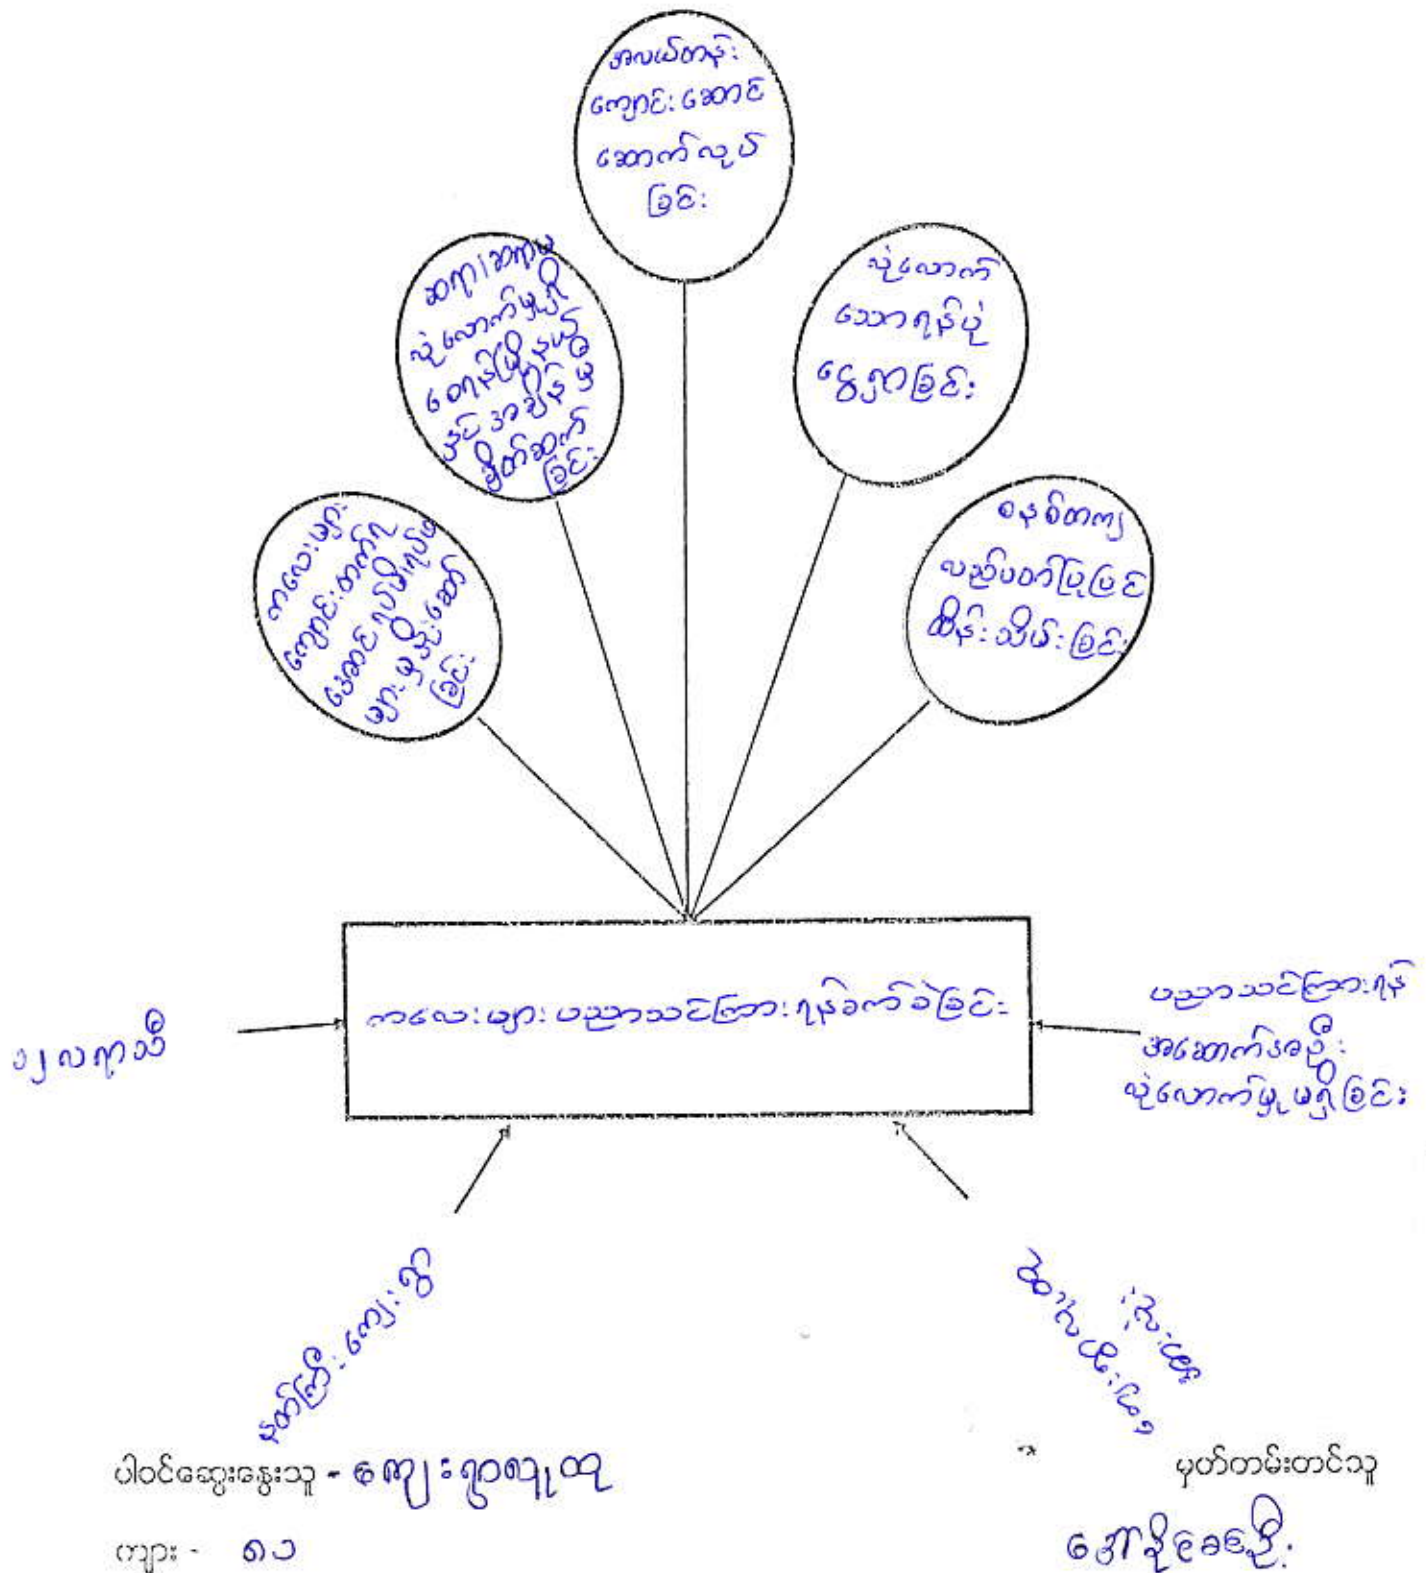 အလယ်တန်း
ကျောင်းဆောင်
ဆောက်လုပ်
ခြင်း
ဆရာ၊ဆရာမ
လုံလောက်မှုရှိ
စေရန်မြို့နယ်
နှင့်အချိန်မှီ
ချိတ်ဆက်
ခြင်း
လုံလောက်
သောရန်ပုံ
ငွေရှာခြင်း
ကလေးများ
ကျောင်းတက်ရ
အောင်ရပ်မိရပ်ဖ
များမှနှိုးဆော်
ခြင်း
စနစ်တကျ
လည်ပတ်ပြုပြင်
ထိန်းသိမ်းခြင်း
ကလေးများပညာသင်ကြားရန်ခက်ခဲခြင်း
၁၂လရာသီ
ပညာသင်ကြားရန်
အဆောက်အဦး
လုံလောက်မှုမရှိခြင်း
နတ်ကြီးကျေးရွာ
ပါဝင်ဆွေးနွေးသူ - ကျေးရွာလူထု
မှတ်တမ်းတင်သူ
ကျား - ၈၁